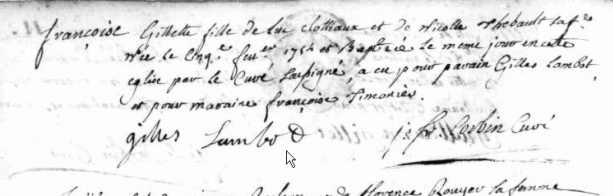 françoise Gillette fille de Luc Clottiaux et de Nicolle Thebault sa fe
née le Cinqe feuer 1754 et Baptisée le meme jour en cette
eglise par le Curé Soussigné, a eu pour parain Gilles Lambot,
et pour maraine françoise Simonier.
gilles Lambot Corbin Curé
de florence Rouyer sa femme